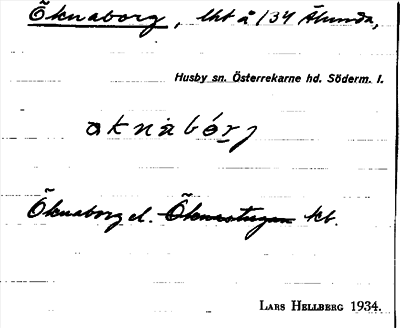 Öknaborg, lht å 1³⁴ Älunda,
Husby sn. Österrekarne hd. Söderm. l.
øknàbórj
Öknaborg el. Öknastugan kb.
LARS HELLBERG 1934.